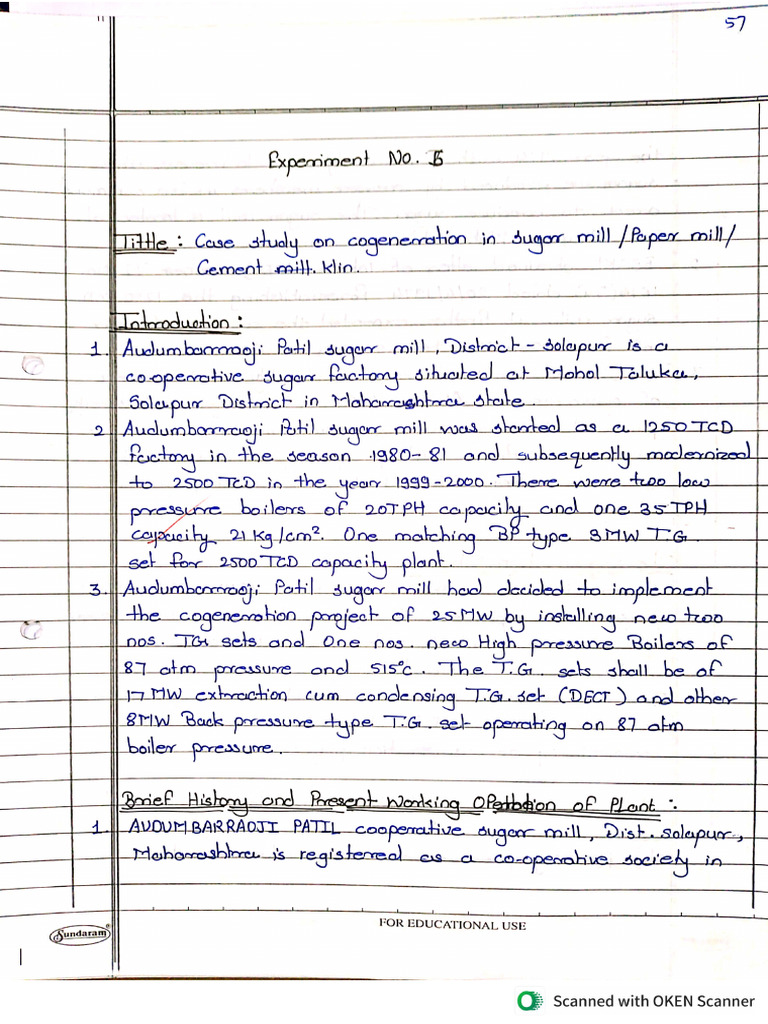 57
Experiment No. 5
Tittle : Case study on cogenerration in sugar mill /Paper mill/
Cement mill. klin.
Introduction :
1. Audumbarraoji Patil sugar mill, District - Solapur is a
co-operative sugar factory situated at Mohol Taluka,
Solapur District in Maharashtra state.
2 Audumbarraoji Patil sugar mill was started as a 1250 TCD
factory in the season 1980-81 and subsequently modernized
to 2500 TCD in the year 1999-2000. There were two low
pressure boilers of 20TPH capacity and one 35 TPH
capacity 21 Kg/cm². One matching BP type 3MW T.G.
set for 2500 TCD capacity plant.
3. Audumbarraoji Patil sugar mill had decided to implement
the cogeneration project of 25 MW by installing new two
nos. TG sets and One nos. new High pressure Boilers of
87 atm pressure and 515°c. The T.G. sets shall be of
17 MW extraction cum condensing T.G. set (DECT) and other
8MW Back pressure type T.G. set operating on 87 atm
boiler pressure.
Brief History and Present Working Operation of Plant :
1. AUDUMBARRAOJI PATIL cooperative sugar mill, Dist. Solapur,
Maharashtra is registerred as a co-operative society in
Sundaram
FOR EDUCATIONAL USE
Scanned with OKEN Scanner